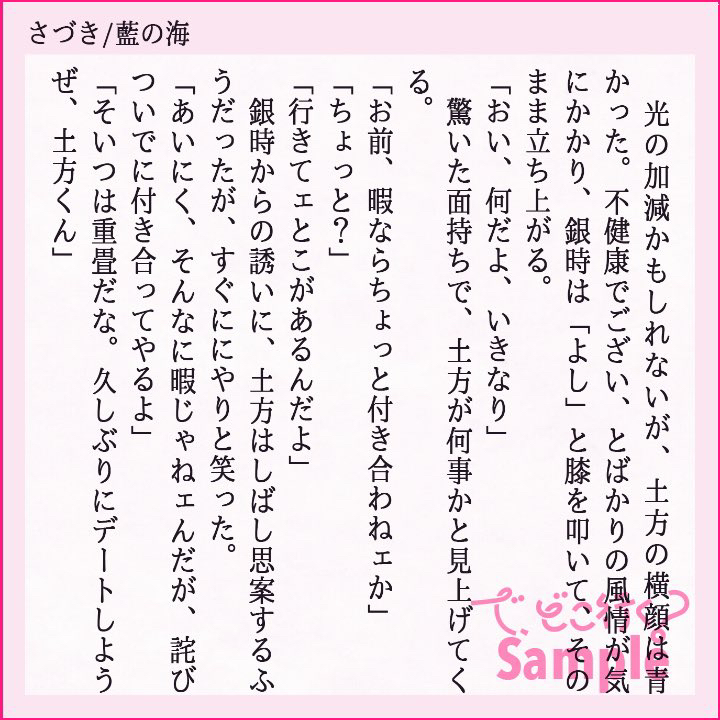 さづき/藍の海
　光の加減かもしれないが、土方の横顔は青
かった。不健康でござい、とばかりの風情が気
にかかり、銀時は「よし」と膝を叩いて、その
まま立ち上がる。
「おい、何だよ、いきなり」
　驚いた面持ちで、土方が何事かと見上げてく
る。
「お前、暇ならちょっと付き合わねェか」
「ちょっと？」
「行きてェとこがあるんだよ」
　銀時からの誘いに、土方はしばし思案するふ
うだったが、すぐににやりと笑った。
「あいにく、そんなに暇じゃねェんだが、詫び
ついでに付き合ってやるよ」
「そいつは重畳だな。久しぶりにデートしよう
ぜ、土方くん」
で、どこ行く?
Sample